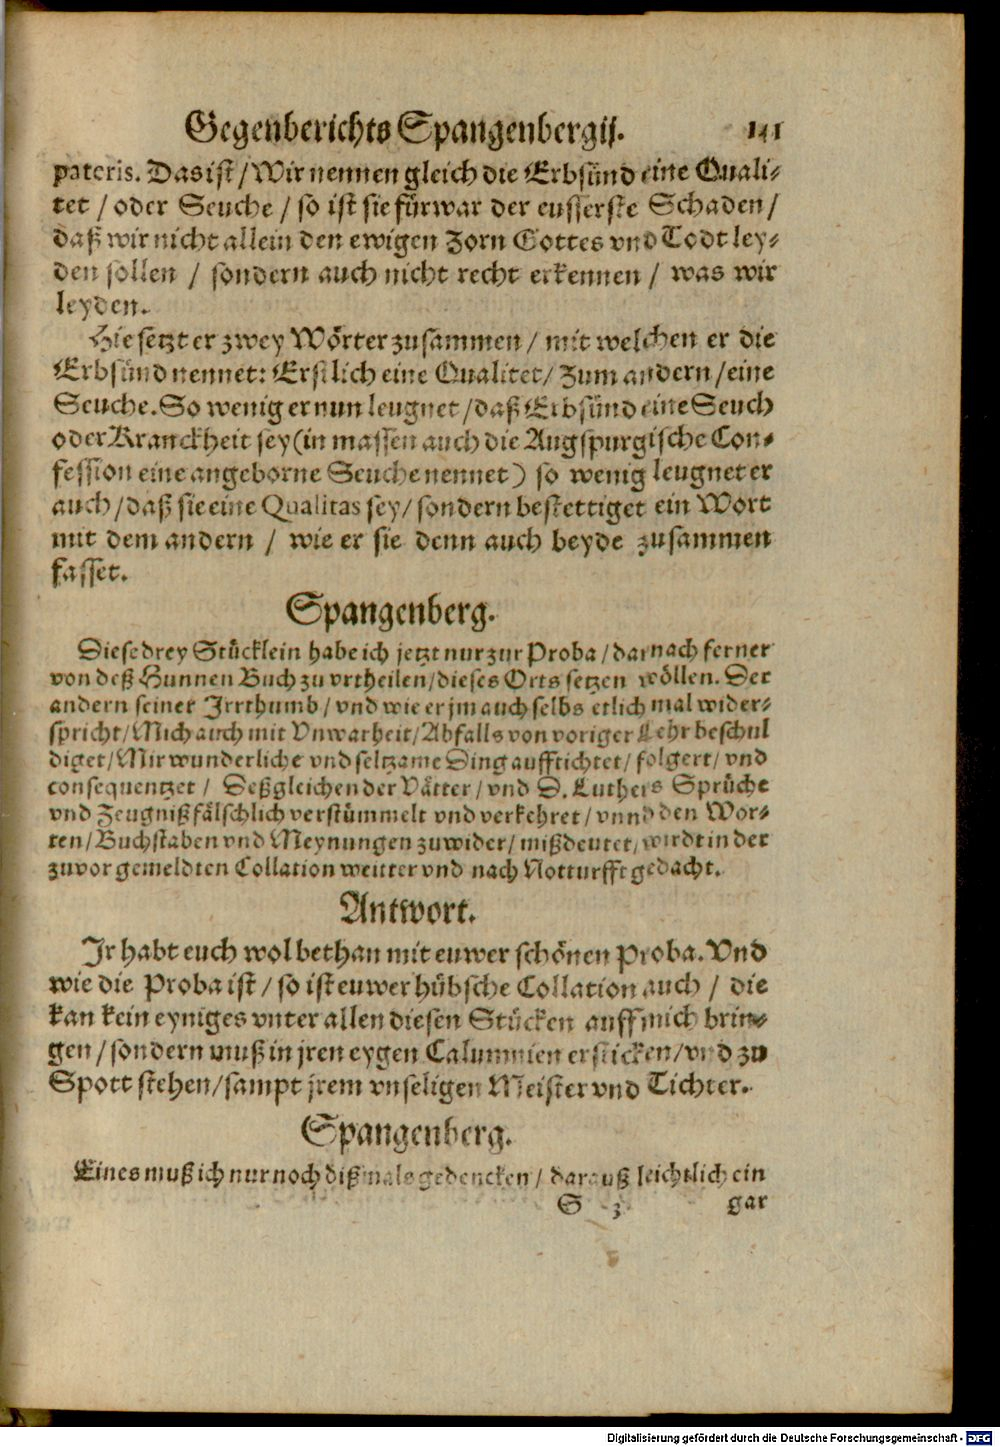 Gegenberichts Spangenbergij. 141
pateris. Das ist / Wir nennen gleich die Erbsünd eine Quali-
tet / oder Seuche / so ist sie fürwar der eusserste Schaden /
daß wir nicht allein den ewigen Zorn Gottes vnd Todt ley-
den sollen / sondern auch nicht recht erkennen / was wir
leyden.
Hie setzt er zwey Wörter zusammen / mit welchen er die
Erbsünd nennet: Erstlich eine Qualitet / Zum andern / eine
Seuche. So wenig er nun leugnet / daß Erbsünd eine Seuch
oder Kranckheit sey (in massen auch die Augspurgische Con-
fession eine angeborne Seuche nennet) so wenig leugnet er
auch / daß sie eine Qualitas sey / sondern bestettiget ein Wort
mit dem andern / wie er sie denn auch beyde zusammen
fasset.
Spangenberg.
Diese drey Stücklein habe ich jetzt nur zur Proba / darnach ferner
von deß Hunnen Buch zu vrtheilen / dieses Orts setzen wöllen. Der
andern seiner Irrthumb / vnd wie er jm auch selbs etlich mal wider-
spricht / Mich auch mit Vnwarheit / Abfalls von voriger Lehr beschul
diget / Mir wunderliche vnd seltzame Ding aufftichtet / folgert / vnd
consequentzet / Deßgleichen der Vätter / vnd D. Luthers Sprüche
vnd Zeugniß fälschlich verstümmelt vnd verkehret / vnnd den Wor-
ten / Buchstaben vnd Meynungen zuwider / mißdeutet / wirdt in der
zuvor gemeldten Collation weitter vnd nach Notturfft gedacht.
Antwort.
Ir habt euch wol bethan mit euwer schönen Proba. Vnd
wie die Proba ist / so ist euwer hübsche Collation auch / die
kan kein eyniges vnter allen diesen Stücken auff mich brin-
gen / sondern muß in jren eygen Calumnien ersticken / vnd zu
Spott stehen / sampt jrem vnseligen Meister vnd Tichter.
Spangenberg.
Eines muß ich nur noch dißmals gedencken / darauß leichtlich ein
S 3 gar
Digitalisierung gefördert durch die Deutsche Forschungsgemeinschaft - DFG